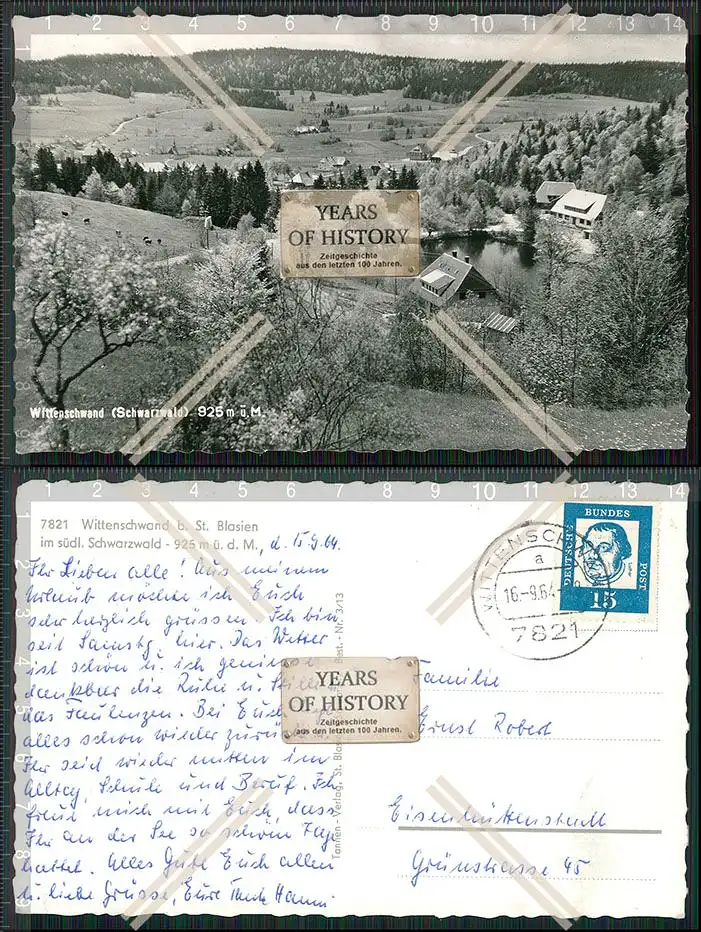 YEARS
OF HISTORY
Zeitgeschichte
aus den letzten 100 Jahren.
Wittenschwand (Schwarzwald) 925 m ü. M.
7821 Wittenschwand b. St. Blasien
im südl. Schwarzwald - 925 m ü. d. M., d. 15.9.64.
Ihr Lieben alle! Aus meinem
Urlaub möchte ich Euch
sehr herzlich grüssen. Ich bin
seit Samstg. hier. Das Wetter
ist schön u. ich geniesse
dankbar die Ruhe u. Stille u.
das Faulenzen. Bei Euch
alles schon wieder
Ihr seid wieder mitten im
Alltag, Schule und Beruf. Ich
freue mich mit Euch, dass
Ihr an der See so schöne Tage
hattet. Alles Gute Euch allen
u. liebe Grüsse, Eure Hanni
Tannen - Verlag, St. Blas Best. - Nr. 3/13
YEARS
OF HISTORY
Zeitgeschichte
aus den letzten 100 Jahren.
WITTENSCHWA
a
16.-9.64
7821
DEUTSCHE
BUNDES
POST
15
Familie
Ernst Robert
Eisenhüttenstadt
Grünstrasse 45